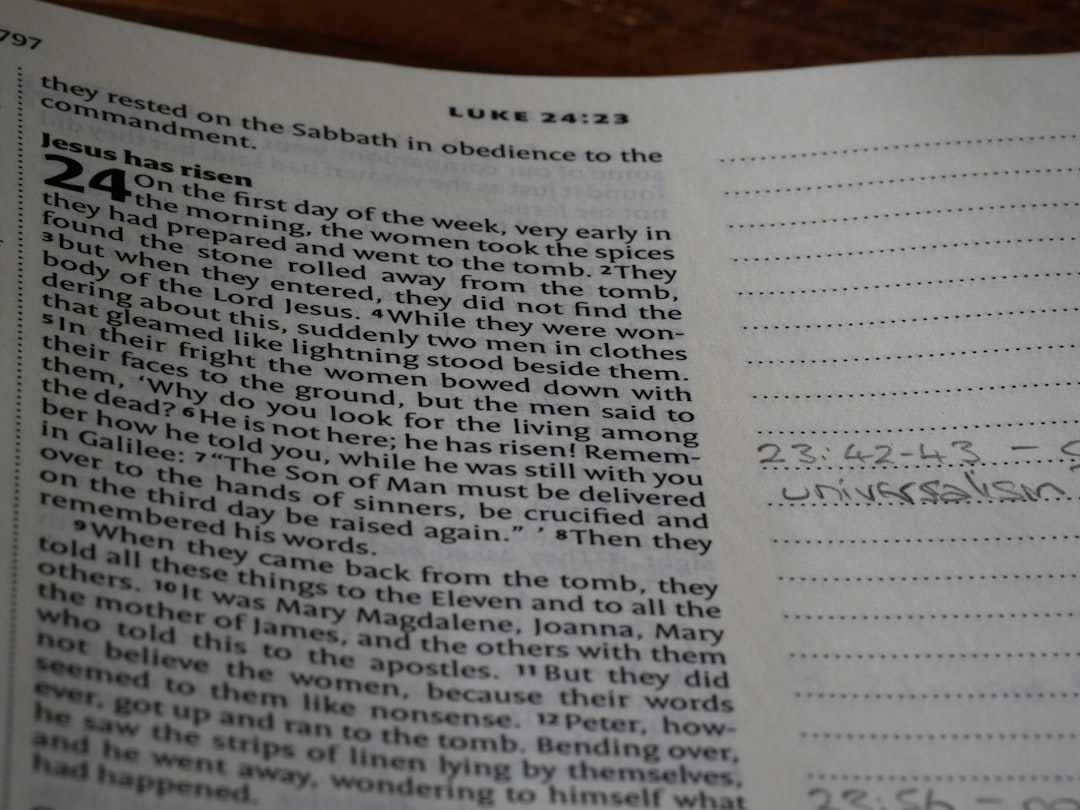 797
LUKE 24:23
they rested on the Sabbath in obedience to the
commandment.
Jesus has risen
24 On the first day of the week, very early in
the morning, the women took the spices
they had prepared and went to the tomb. 2They
found the stone rolled away from the tomb,
3but when they entered, they did not find the
body of the Lord Jesus. 4While they were won-
dering about this, suddenly two men in clothes
that gleamed like lightning stood beside them.
5In their fright the women bowed down with
their faces to the ground, but the men said to
them, ‘Why do you look for the living among
the dead? 6He is not here; he has risen! Remem-
ber how he told you, while he was still with you
in Galilee: 7“The Son of Man must be delivered
over to the hands of sinners, be crucified and
on the third day be raised again.” ’ 8Then they
remembered his words.
9When they came back from the tomb, they
told all these things to the Eleven and to all the
others. 10It was Mary Magdalene, Joanna, Mary
the mother of James, and the others with them
who told this to the apostles. 11But they did
not believe the women, because their words
seemed to them like nonsense. 12Peter, how-
ever, got up and ran to the tomb. Bending over,
he saw the strips of linen lying by themselves,
and he went away, wondering to himself what
had happened.
23:42-43 –
universalism
23:56 –